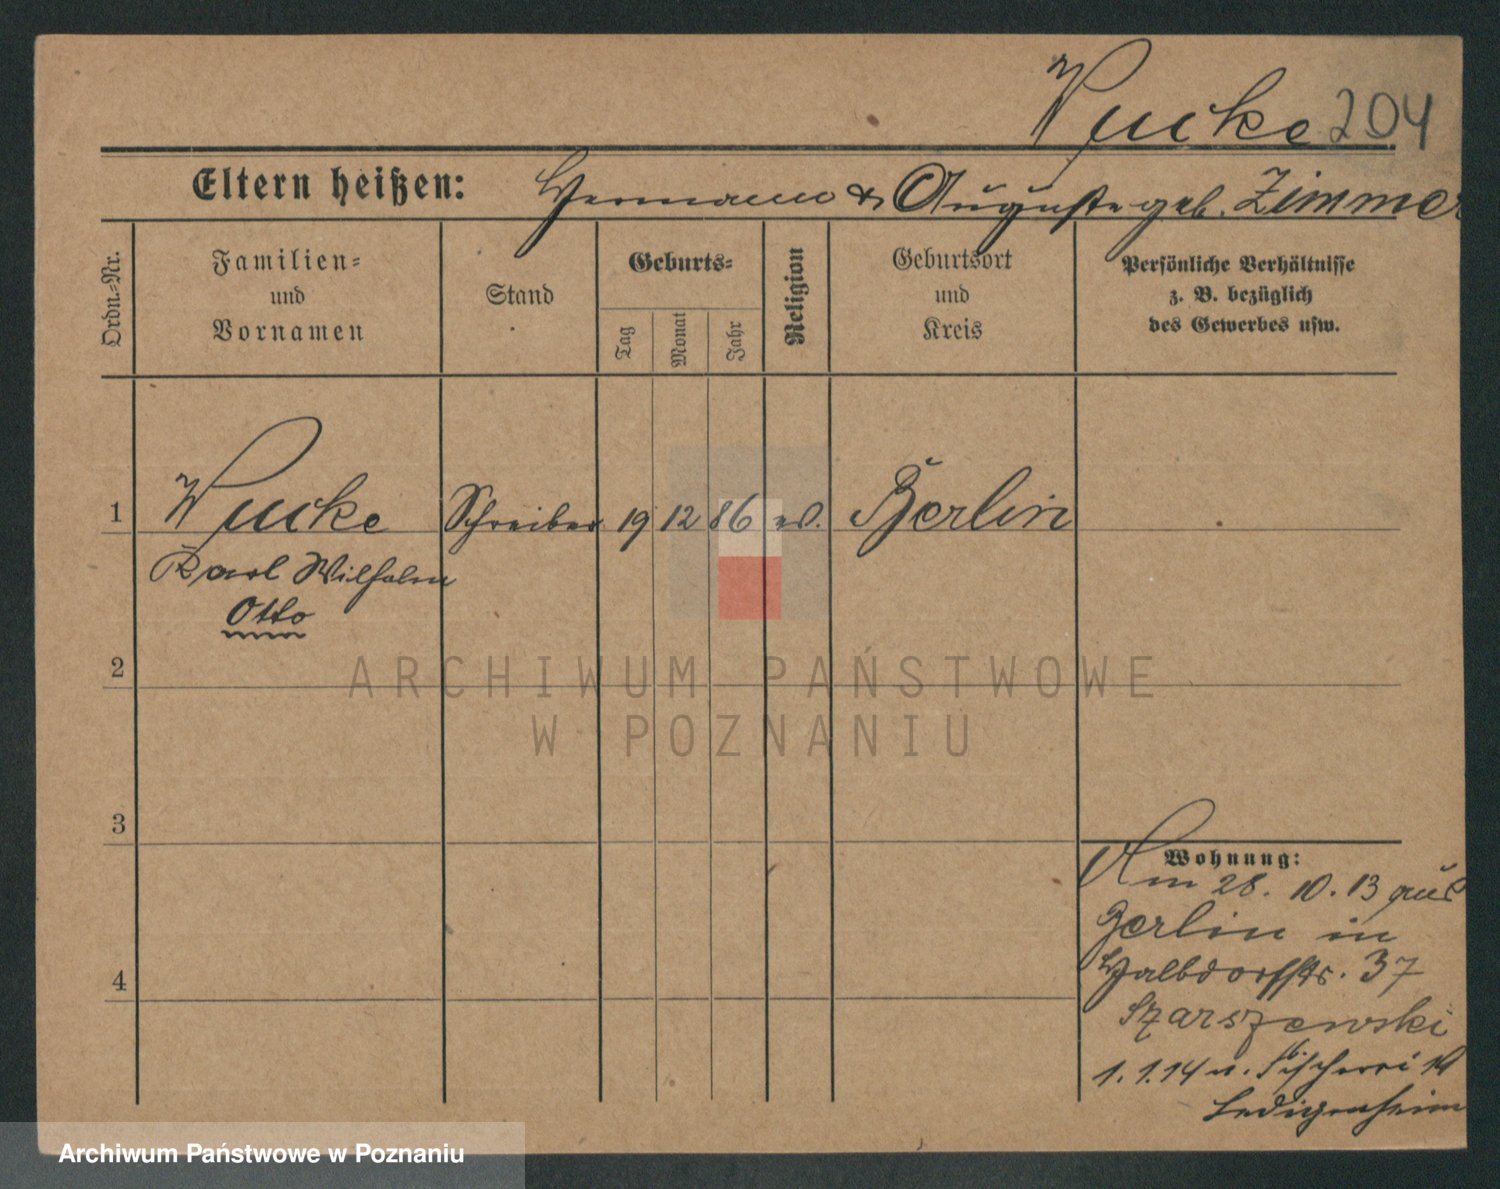 Wucke 204
Eltern heißen: Hermann & Auguste geb. Zimmer
Ordn.-Nr.
Familien-
und
Vornamen
Stand
Geburts-
Tag
Monat
Jahr
Religion
Geburtsort
und
Kreis
Persönliche Verhältnisse
z. B. bezüglich
des Gewerbes usw.
1 Wucke Schreiber 19 12 86 ev. Berlin
Karl Wilhelm
Otto
2
3
4
Wohnung:
Am 28. 10. 13 aus
Berlin in
Halbdorfstr. 37
Szarszewski
1. 1. 14 n. Fischerei
Ledigenheim
ARCHIWUM PAŃSTWOWE
W POZNANIU
Archiwum Państwowe w Poznaniu